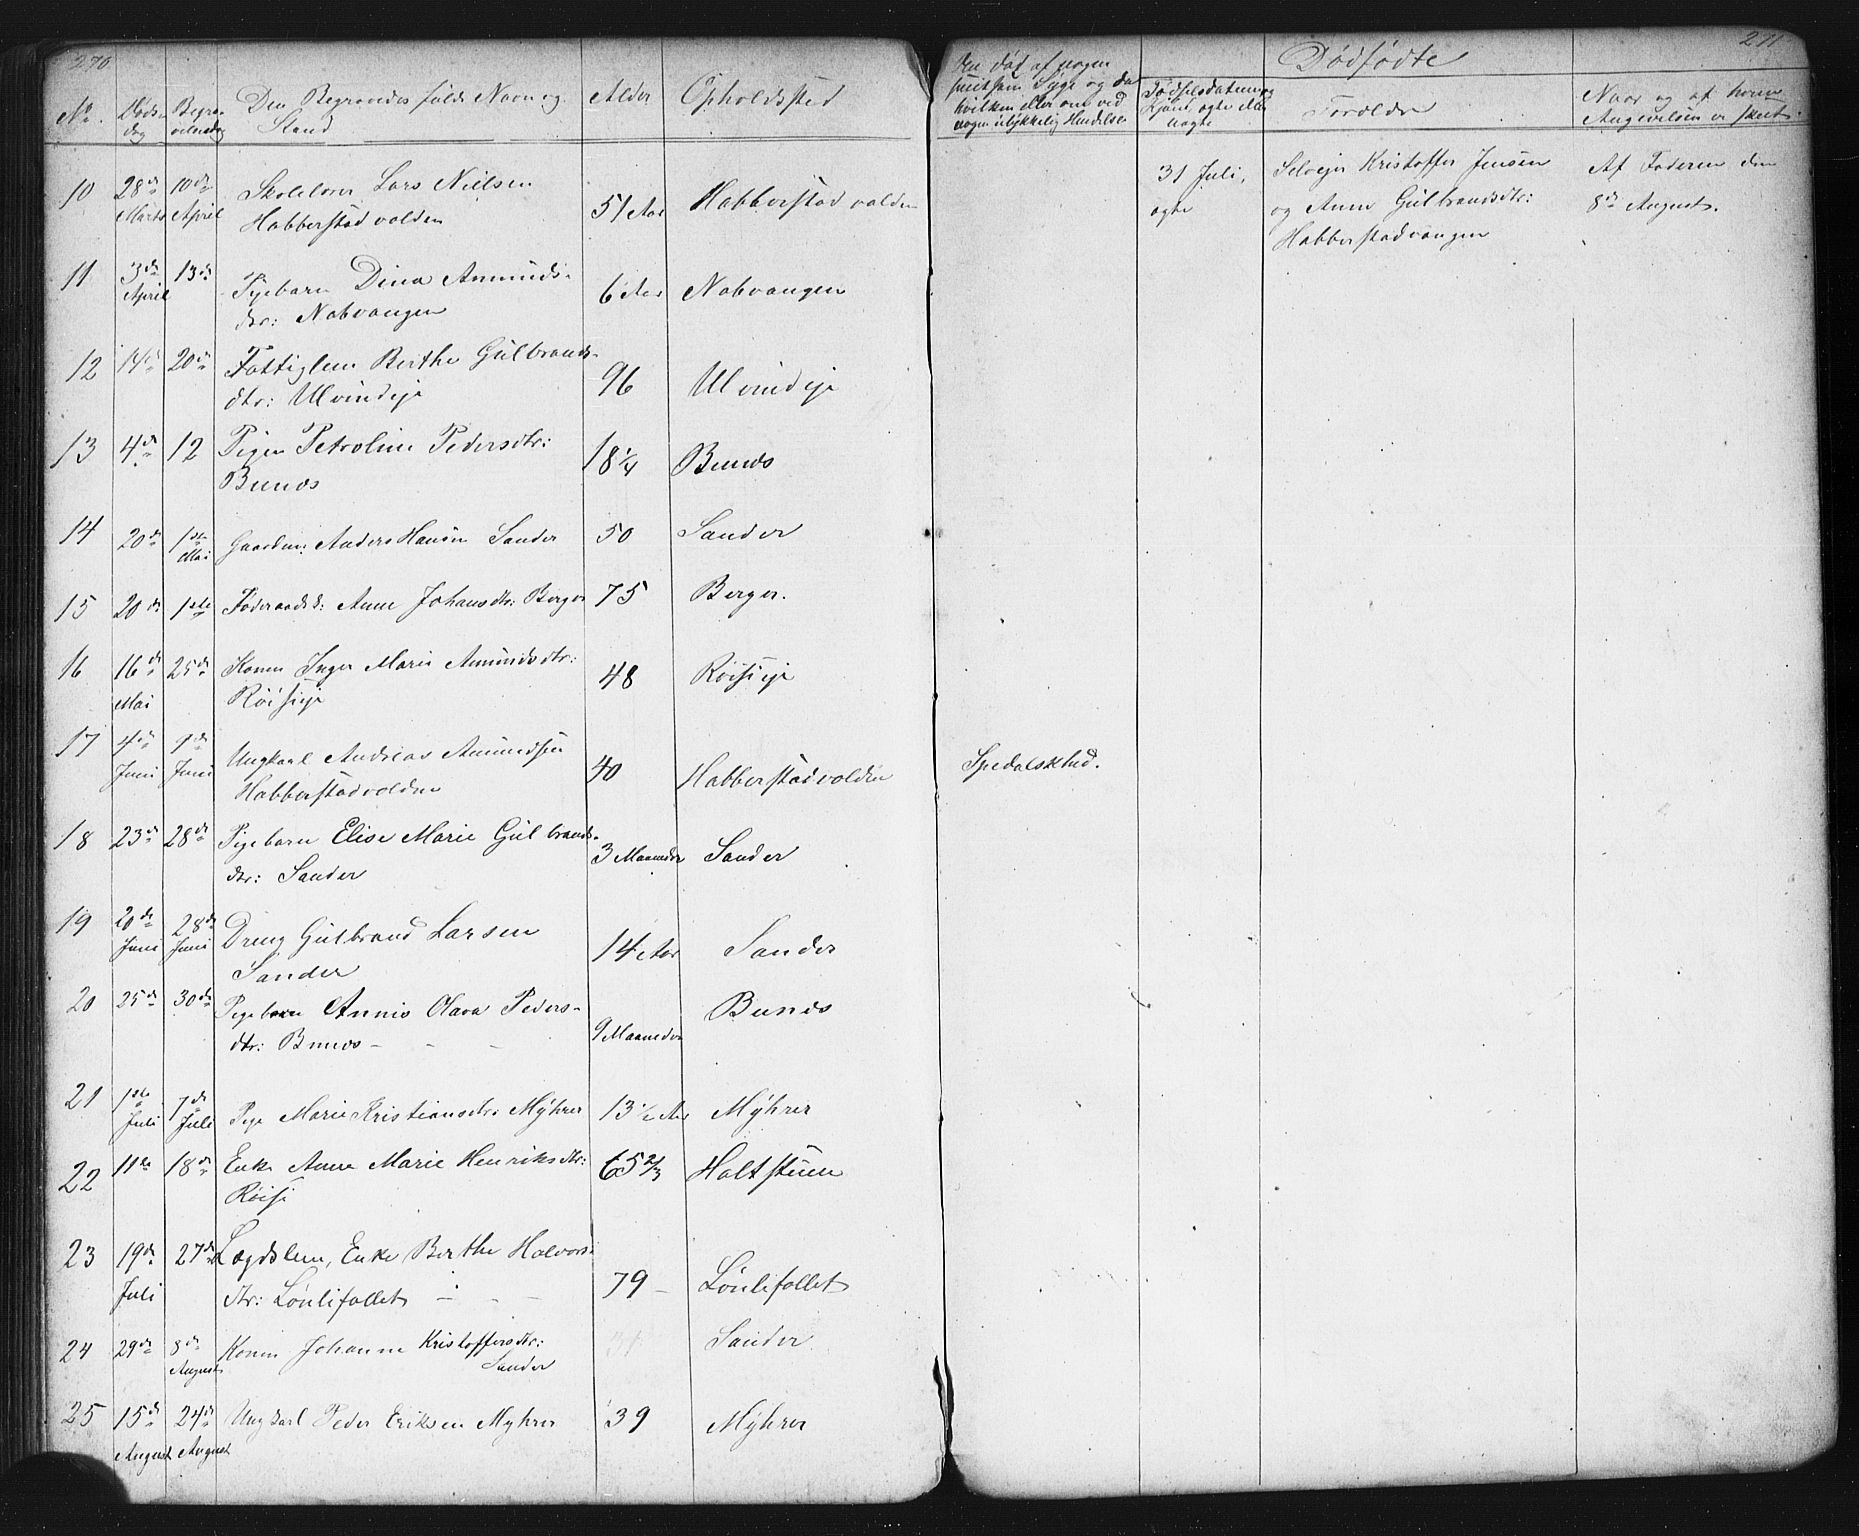 270
No. Døds-dag Begravelsesdag Den Begravedes fulde Navn og Stand Alder Opholdssted
10 28de Marts 10de April Skolelærer Lars Nielsen 51 Aar Habberstadvolden
Habberstadvolden
11 3de April 13de Pigebarn Dina Amunds- 6 Aar Nabvangen
dtr: Nabvangen
12 14de 20de Fattiglem Berthe Gulbrands- 96 Ulvindeje
dtr: Ulvindeje
13 4de 12 Pigen Petroline Pedersdtr: 18 1/4 Bunæs
Bunæs
14 20de 1ste Mai Gaardm: Anders Hansen Sander 50 Sander
15 20de 1ste Føderaadsk: Anne Johansdtr: Berger 75 Berger.
16 16de Mai 25de Konen Inger Marie Amundsdtr: 48 Røiseje
Røiseje
17 4de Juni 9de Juni Ungkarl Andreas Amundsen 40 Habberstadvolden
Habberstadvolden
18 23de 28de Pigebarn Elise Marie Gulbrands- 3 Maaneder Sander
dtr: Sander
19 20de Juni 28de Juni Dreng Gulbrand Larsen 14 Aar Sander
Sander
20 25de 30de Pigebarn Annie Olava Peders- 9 Maaneder Bunæs
dtr: Bunæs - - -
21 1ste Juli 7de Juli Pige Marie Kristiansdtr: Myhrer 13 1/2 Aar Myhrer
22 11te 18de Enke Anne Marie Henriksdtr: 65 2/3 Holtstuen
Røise
23 19de Juli 27de Lægdslem, Enke Berthe Halvors- 79 - Lønlifallet
dtr: Lønlifallet - - -
24 29de 8de August Konen Johanne Kristoffersdtr: Sander
Sander
25 15de August 24de August Ungkarl Peder Eriksen Myhrer 39 Myhrer
271
Om død af nogen
smitsom Syge og da
hvilken eller om ved
nogen ulykkelig Hændelse
Dødfødte
Fødselsdatum og
Kjøn, ægte eller
uægte
Forældre
Naar og af hvem
Angivelsen er skeet.
31 Juli, Selvejer Kristoffer Jensen Af Faderen den
ægte og Anne Gulbrandsdtr: 8de August.
Habberstadvangen
Spedalskhed.